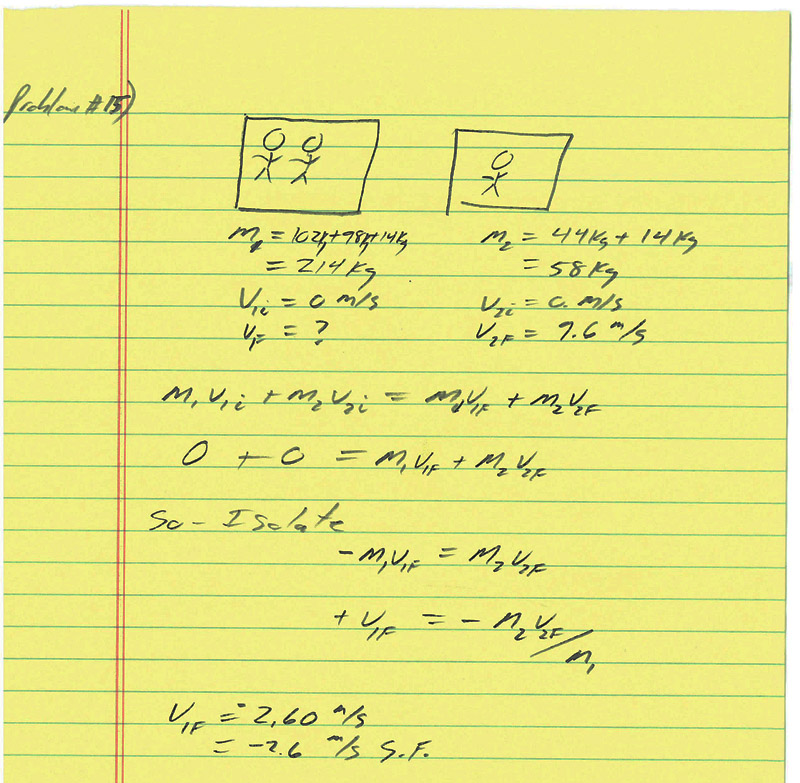 Problem #15)
m₁ = 102kg+98kg+14kg
= 214 kg
V₁ᵢ = 0 m/s
V₁F = ?
m₂ = 44kg + 14kg
= 58 kg
V₂ᵢ = 0. m/s
V₂F = 9.6 m/s
m₁V₁ᵢ + m₂V₂ᵢ = m₁V₁F + m₂V₂F
0 + 0 = m₁V₁F + m₂V₂F
So - Isolate
-m₁V₁F = m₂V₂F
+V₁F = - m₂V₂F/m₁
V₁F = -2.60 m/s
= -2.6 m/s S.F.